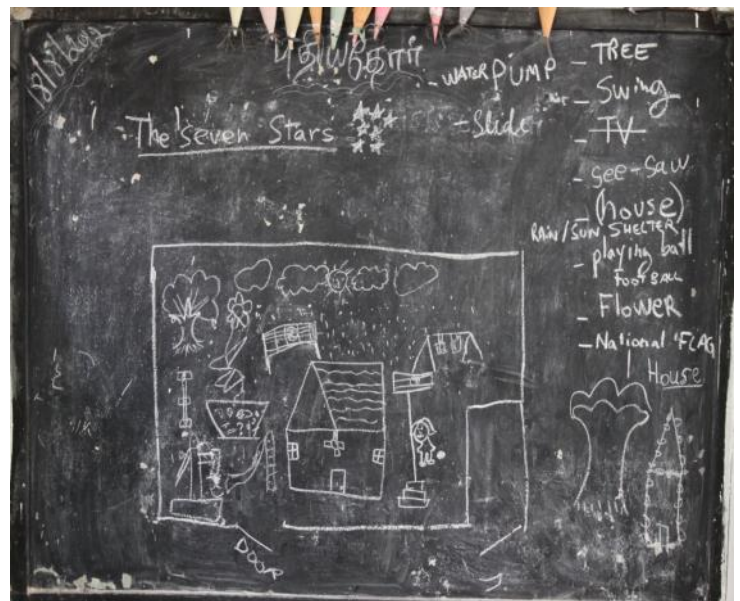 18/8/2012
புதியதோர்
- WATER PUMP
The Seven Stars
- Slide
- TREE
- Swing
- TV
- See-Saw
- (house)
RAIN/SUN SHELTER
- playing ball
FOOTBALL
- Flower
- National FLAG
House
DOOR